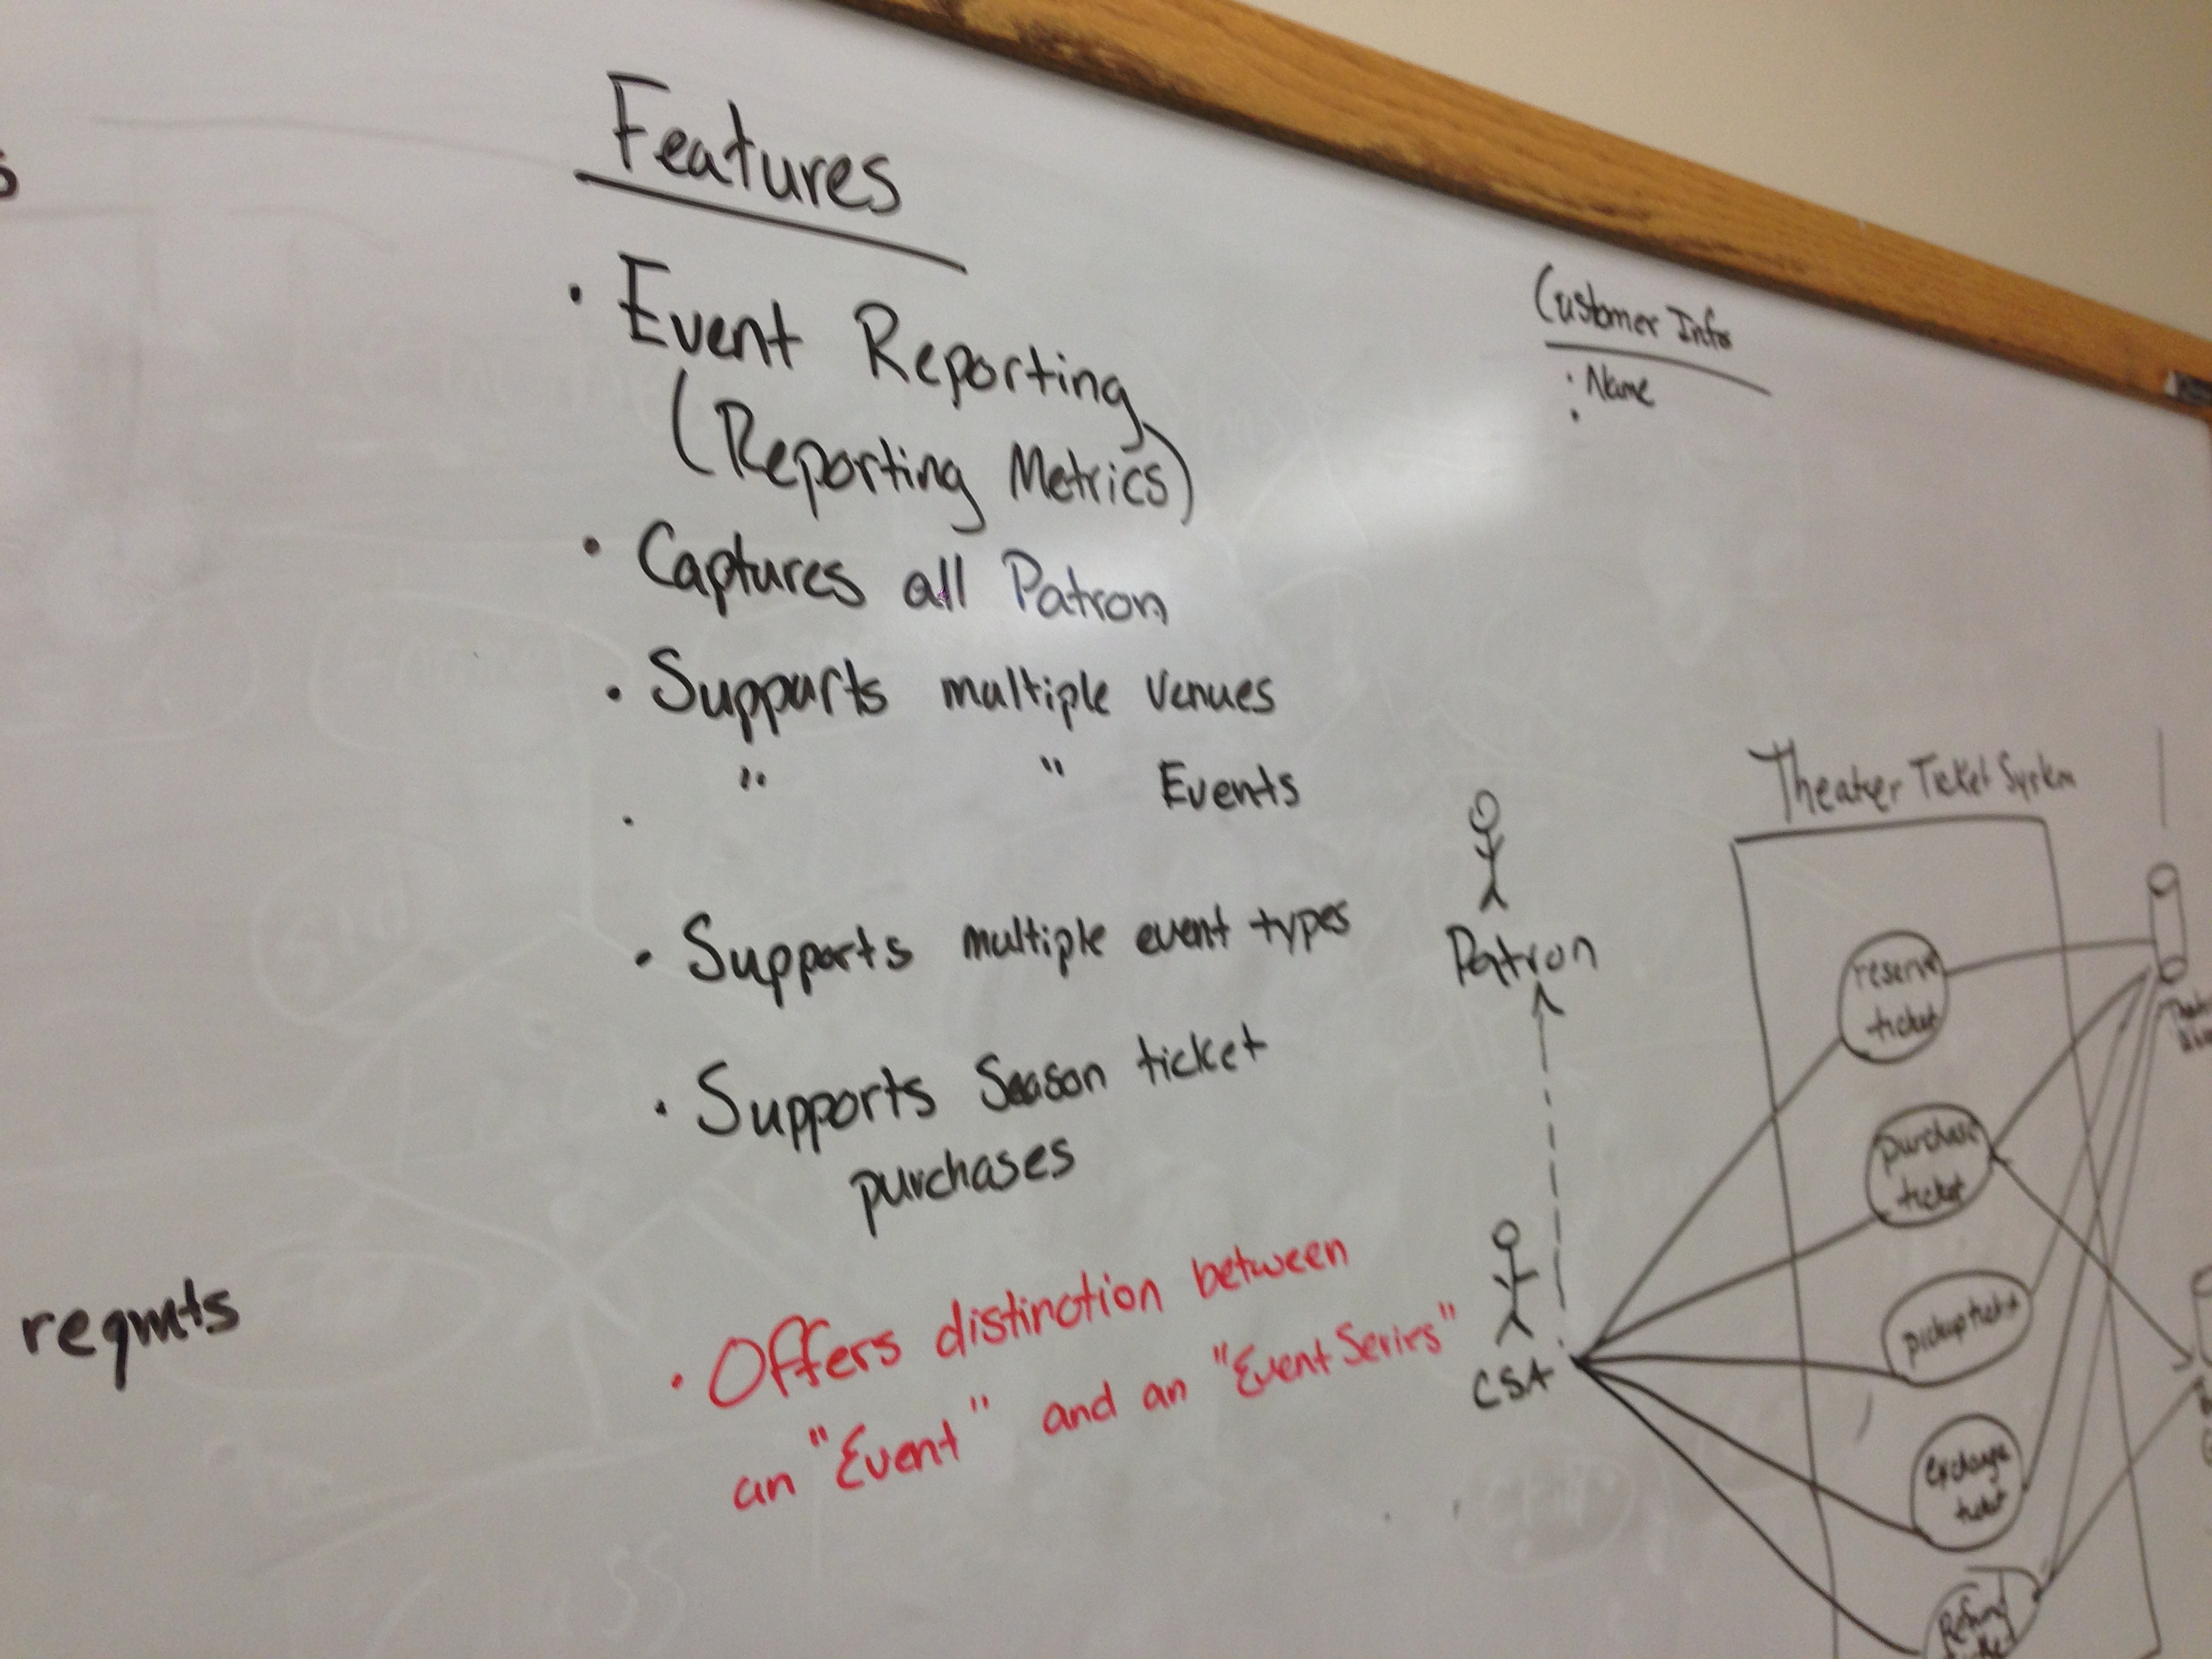 Features
· Event Reporting
(Reporting Metrics)
· Captures all Patron
· Supports multiple venues
· " " Events
· Supports multiple event types
· Supports Season ticket
purchases
· Offers distinction between
an "Event" and an "Event Series"
reqmts
Customer Info
· Name
·
Theater Ticket System
Patron
CSA
reserve
ticket
purchase
ticket
pickup ticket
exchange
ticket
Refund